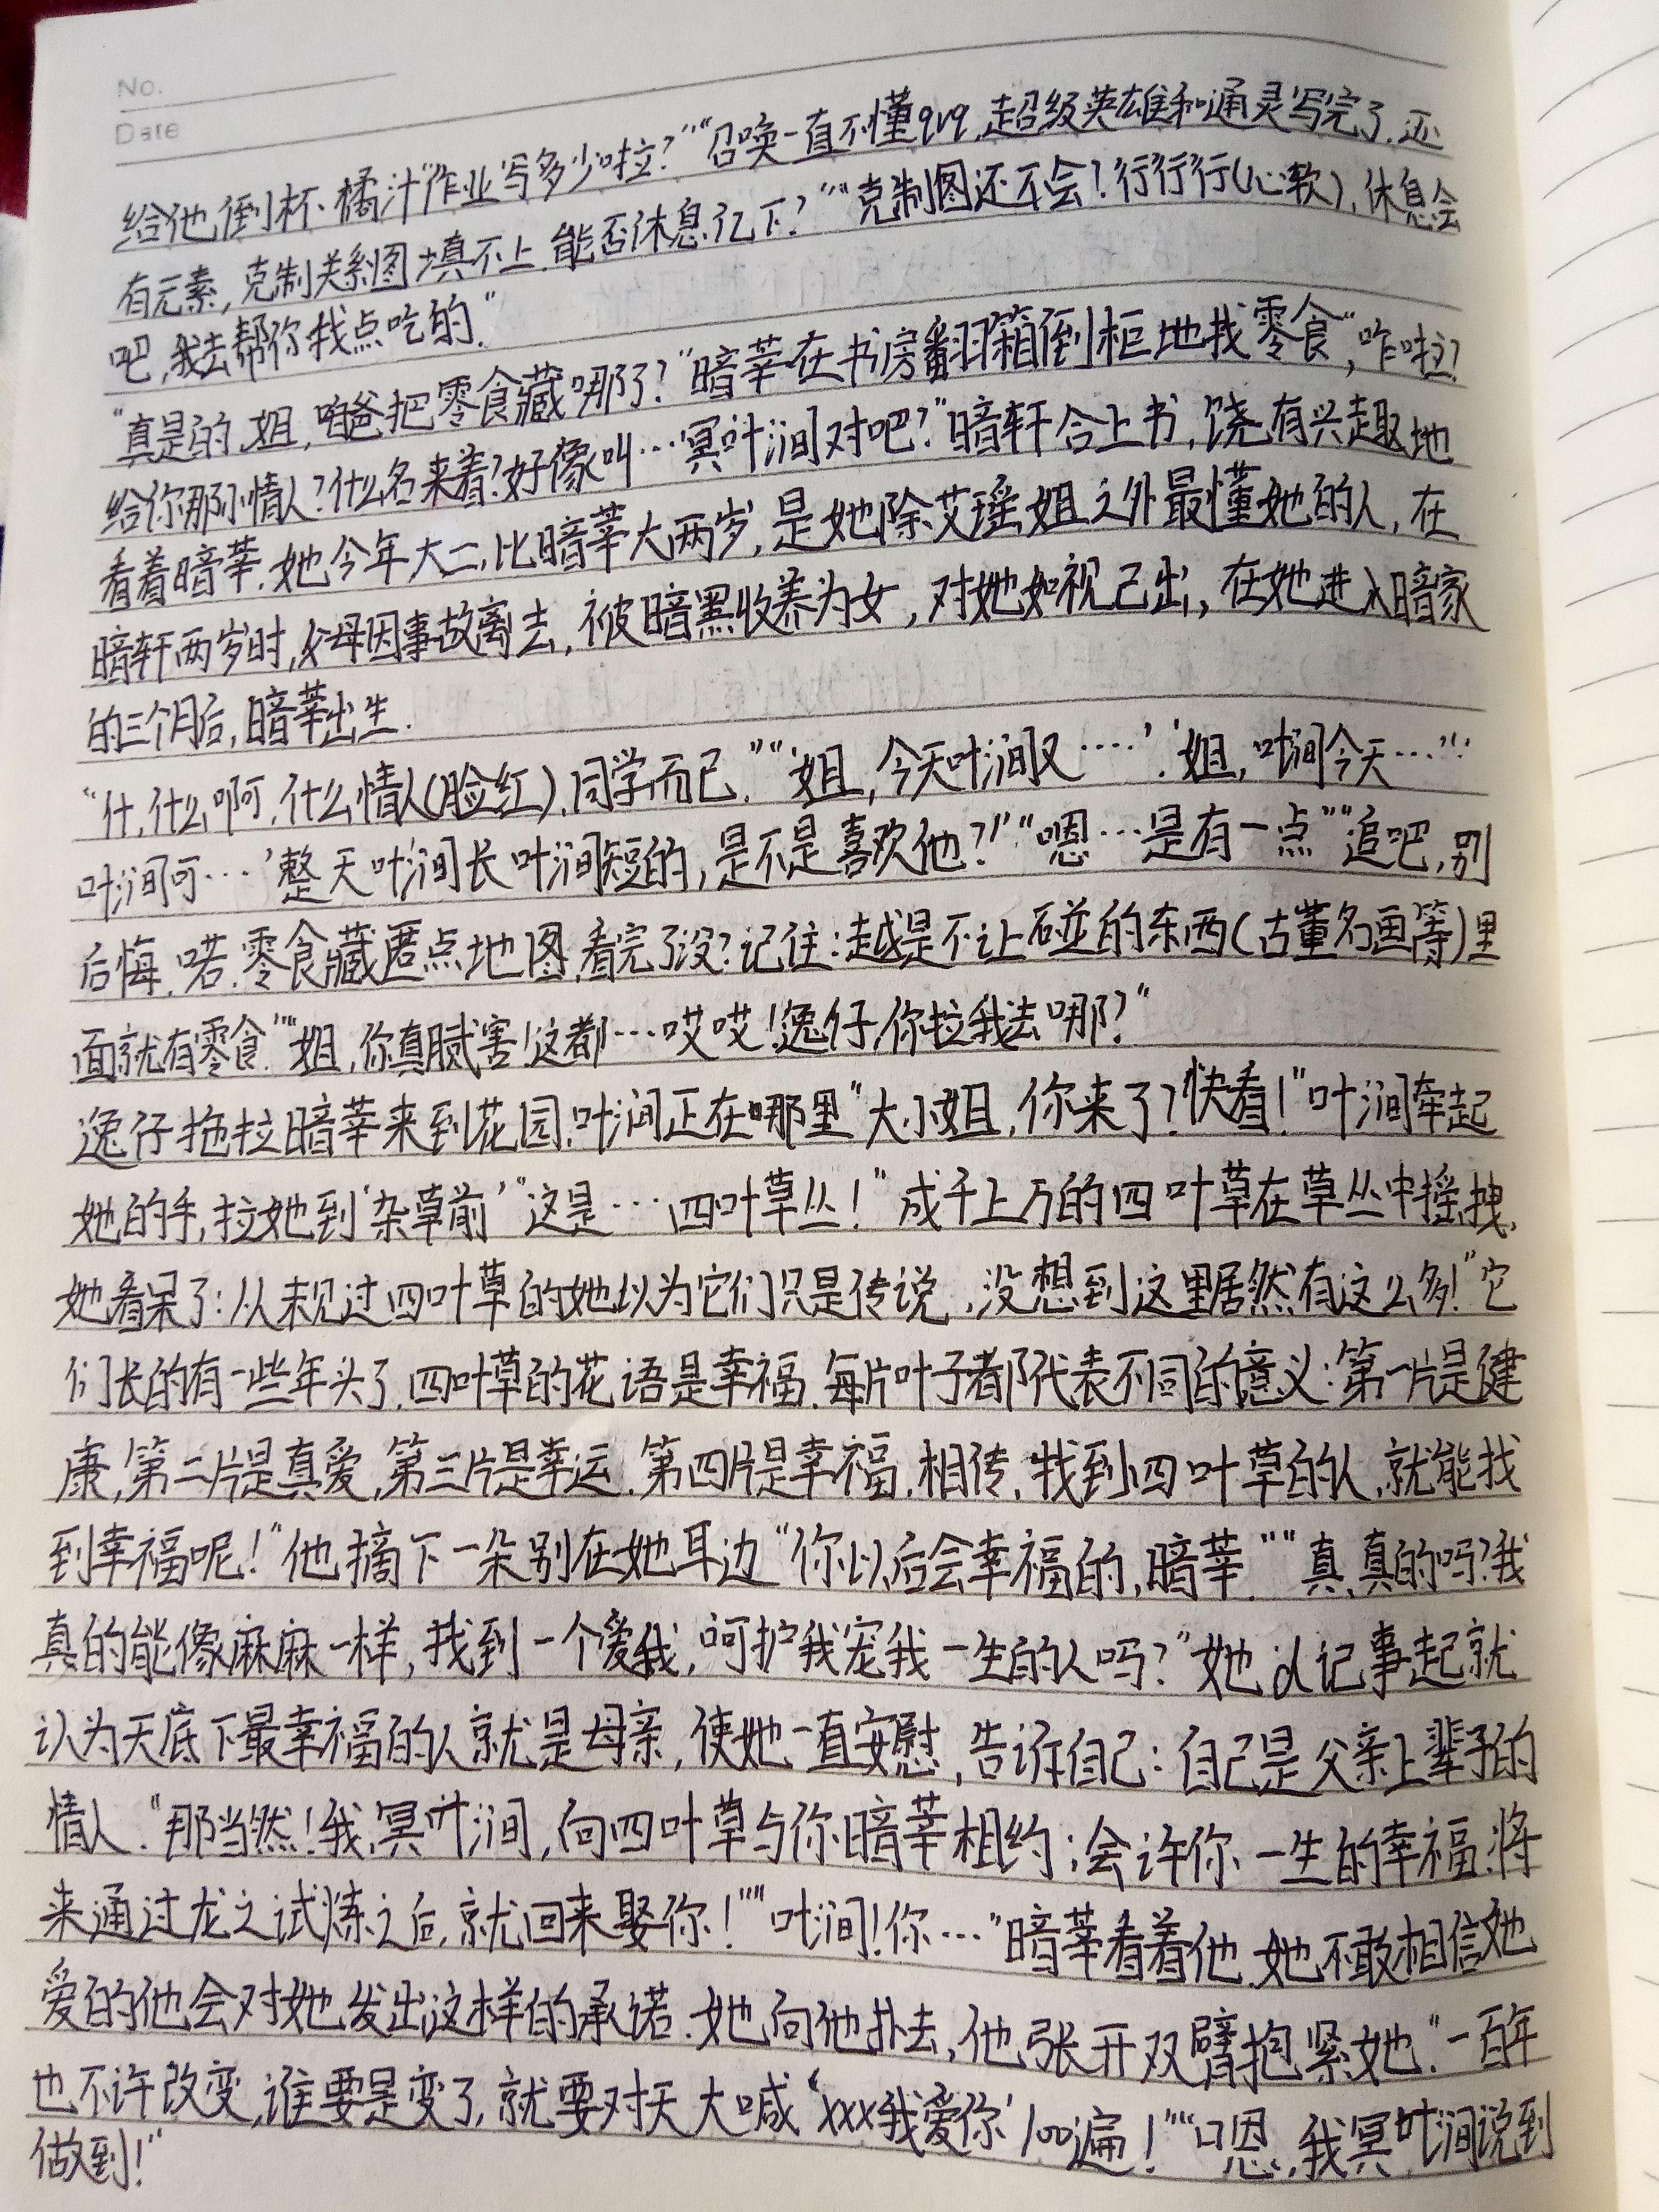 No.
Date
给他倒杯橘汁"作业写多少啦?""召唤一直不懂qvq,超级英雄和通灵写完了.还
有元素,克制关系图填不上.能否休息亿下?""克制图还不会!行行行(心软),休息会
吧,我去帮你找点吃的."
"真是的.姐,咱爸把零食藏哪了?"暗莘在书房翻箱倒柜地找零食",咋啦?
给你那小情人?什么名来着?好像叫…冥叶涧对吧?"暗轩合上书,饶有兴趣地
看着暗莘.她今年大二,比暗莘大两岁,是她除艾瑶姐之外最懂她的人,在
暗轩两岁时,父母因事故离去,被暗黑收养为女,对她如视己出,在她进入暗家
的三个月后,暗莘出生.
"什,什么啊,什么情人(脸红),同学而已.""'姐,今天叶涧又……'.'姐,叶涧今天…''
叶涧可…'整天叶涧长叶涧短的,是不是喜欢他?!""嗯…是有一点""追吧,别
后悔.喏.零食藏匿点地图,看完了没?记住:越是不让碰的东西(古董名画等)里
面就有零食.""姐,你真腻害!这都…哎哎!逸仔,你拉我去哪?"
逸仔拖拉暗莘来到花园.叶涧正在哪里"大小姐,你来了?快看!"叶涧牵起
她的手,拉她到'杂草前'"这是…四叶草丛!"成千上万的四叶草在草丛中摇拽,
她看呆了:从未见过四叶草的她以为它们只是传说,没想到这里居然有这么多!"它
们长的有一些年头了.四叶草的花语是幸福.每片叶子都代表不同的意义:第一片是健
康,第二片是真爱,第三片是幸运.第四片是幸福.相传,找到四叶草的人,就能找
到幸福呢!"他摘下一朵别在她耳边"你以后会幸福的,暗莘.""真,真的吗?我
真的能像麻麻一样,找到一个爱我,呵护我宠我一生的人吗?"她从记事起就
认为天底下最幸福的人就是母亲,使她一直安慰,告诉自己:自己是父亲上辈子的
情人."那当然!我,冥叶涧,向四叶草与你暗莘相约;会许你一生的幸福.将
来通过龙之试炼之后,就回来娶你!""叶涧!你…"暗莘看着他.她不敢相信她
爱的他会对她发出这样的承诺.她向他扑去,他张开双臂抱紧她."一百年
也不许改变,谁要是变了,就要对天大喊'xxx我爱你'100遍!""嗯,我冥叶涧说到
做到!"